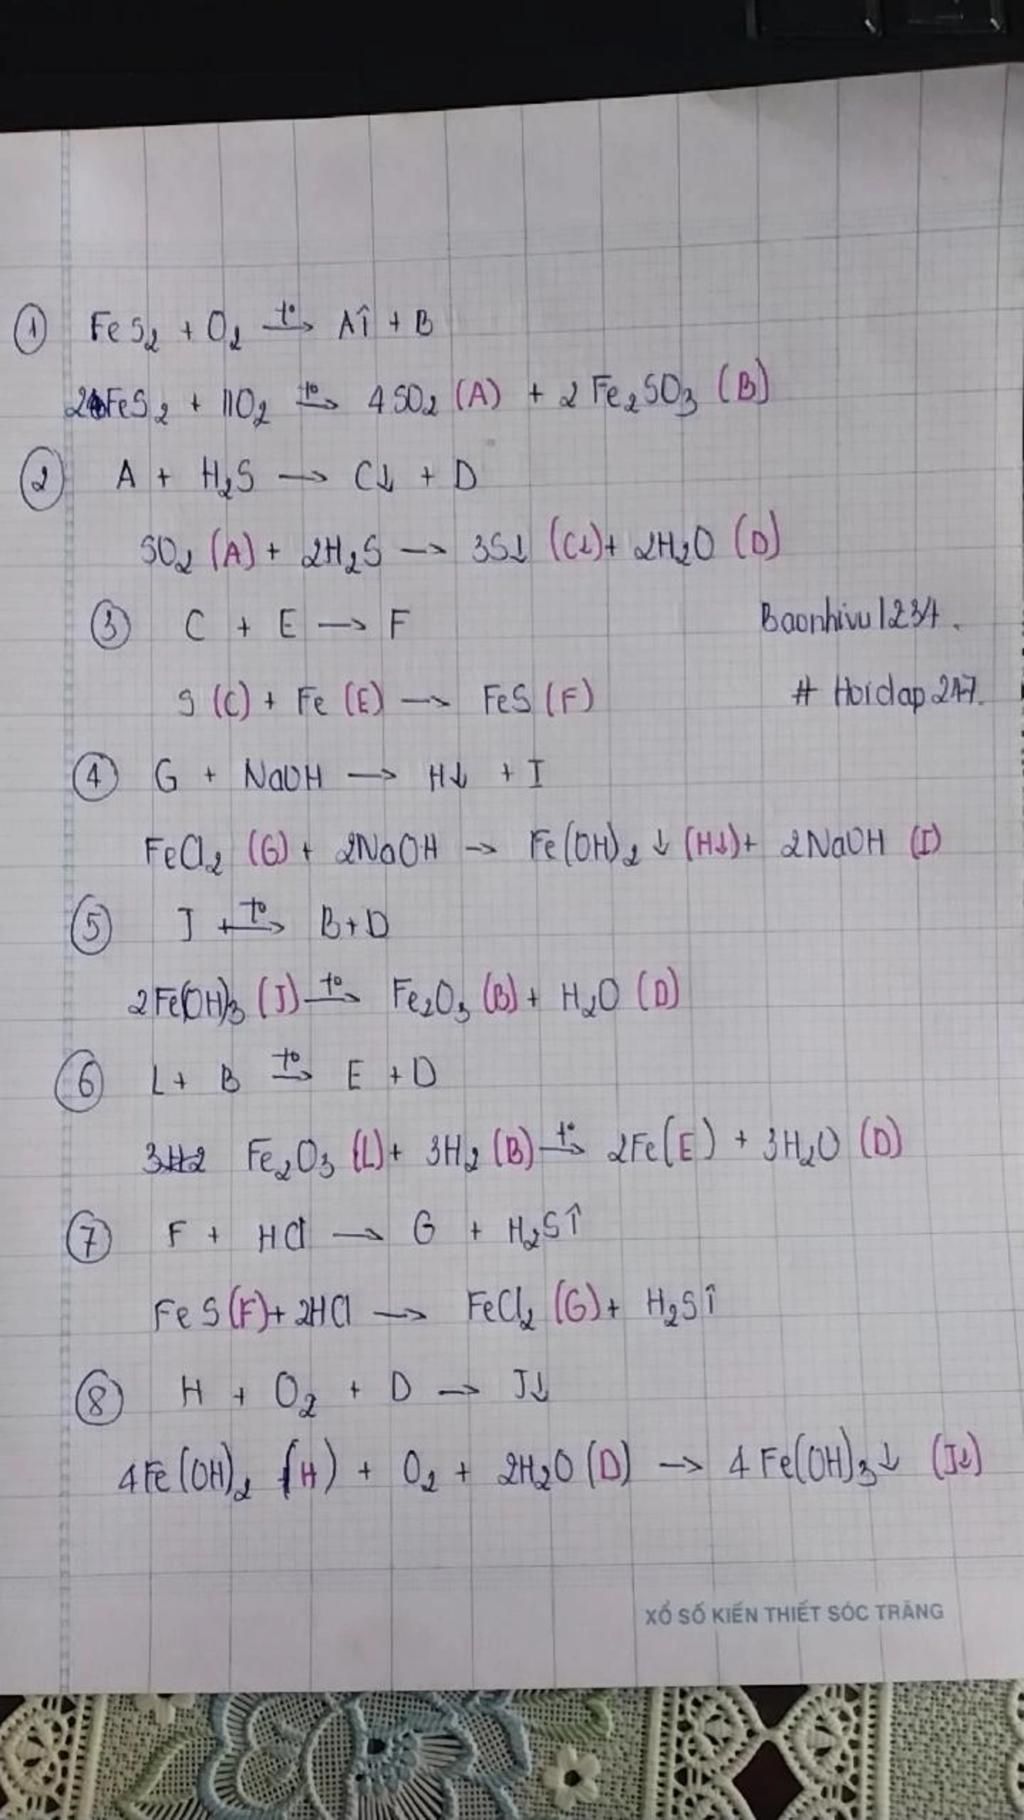 ① FeS₂ + O₂ t°→ A↑ + B
24FeS₂ + 11O₂ t°→ 4SO₂ (A) + 2Fe₂SO₃ (B)
② A + H₂S → C↓ + D
SO₂ (A) + 2H₂S → 3S↓ (C↓) + 2H₂O (D)
③ C + E → F
Baonhivu1234.
S (C) + Fe (E) → FeS (F)
# Hoidap247.
④ G + NaOH → H↓ + I
FeCl₂ (G) + 2NaOH → Fe(OH)₂ ↓ (H↓) + 2NaOH (I)
⑤ J + t°→ B + D
2Fe(OH)₃ (J) t°→ Fe₂O₃ (B) + H₂O (D)
⑥ L + B t°→ E + D
3H2 Fe₂O₃ (L) + 3H₂ (B) t°→ 2Fe (E) + 3H₂O (D)
⑦ F + HCl → G + H₂S↑
FeS (F) + 2HCl → FeCl₂ (G) + H₂S↑
⑧ H + O₂ + D → J↓
4Fe(OH)₂ (H) + O₂ + 2H₂O (D) → 4Fe(OH)₃↓ (J↓)
XỔ SỐ KIẾN THIẾT SÓC TRĂNG